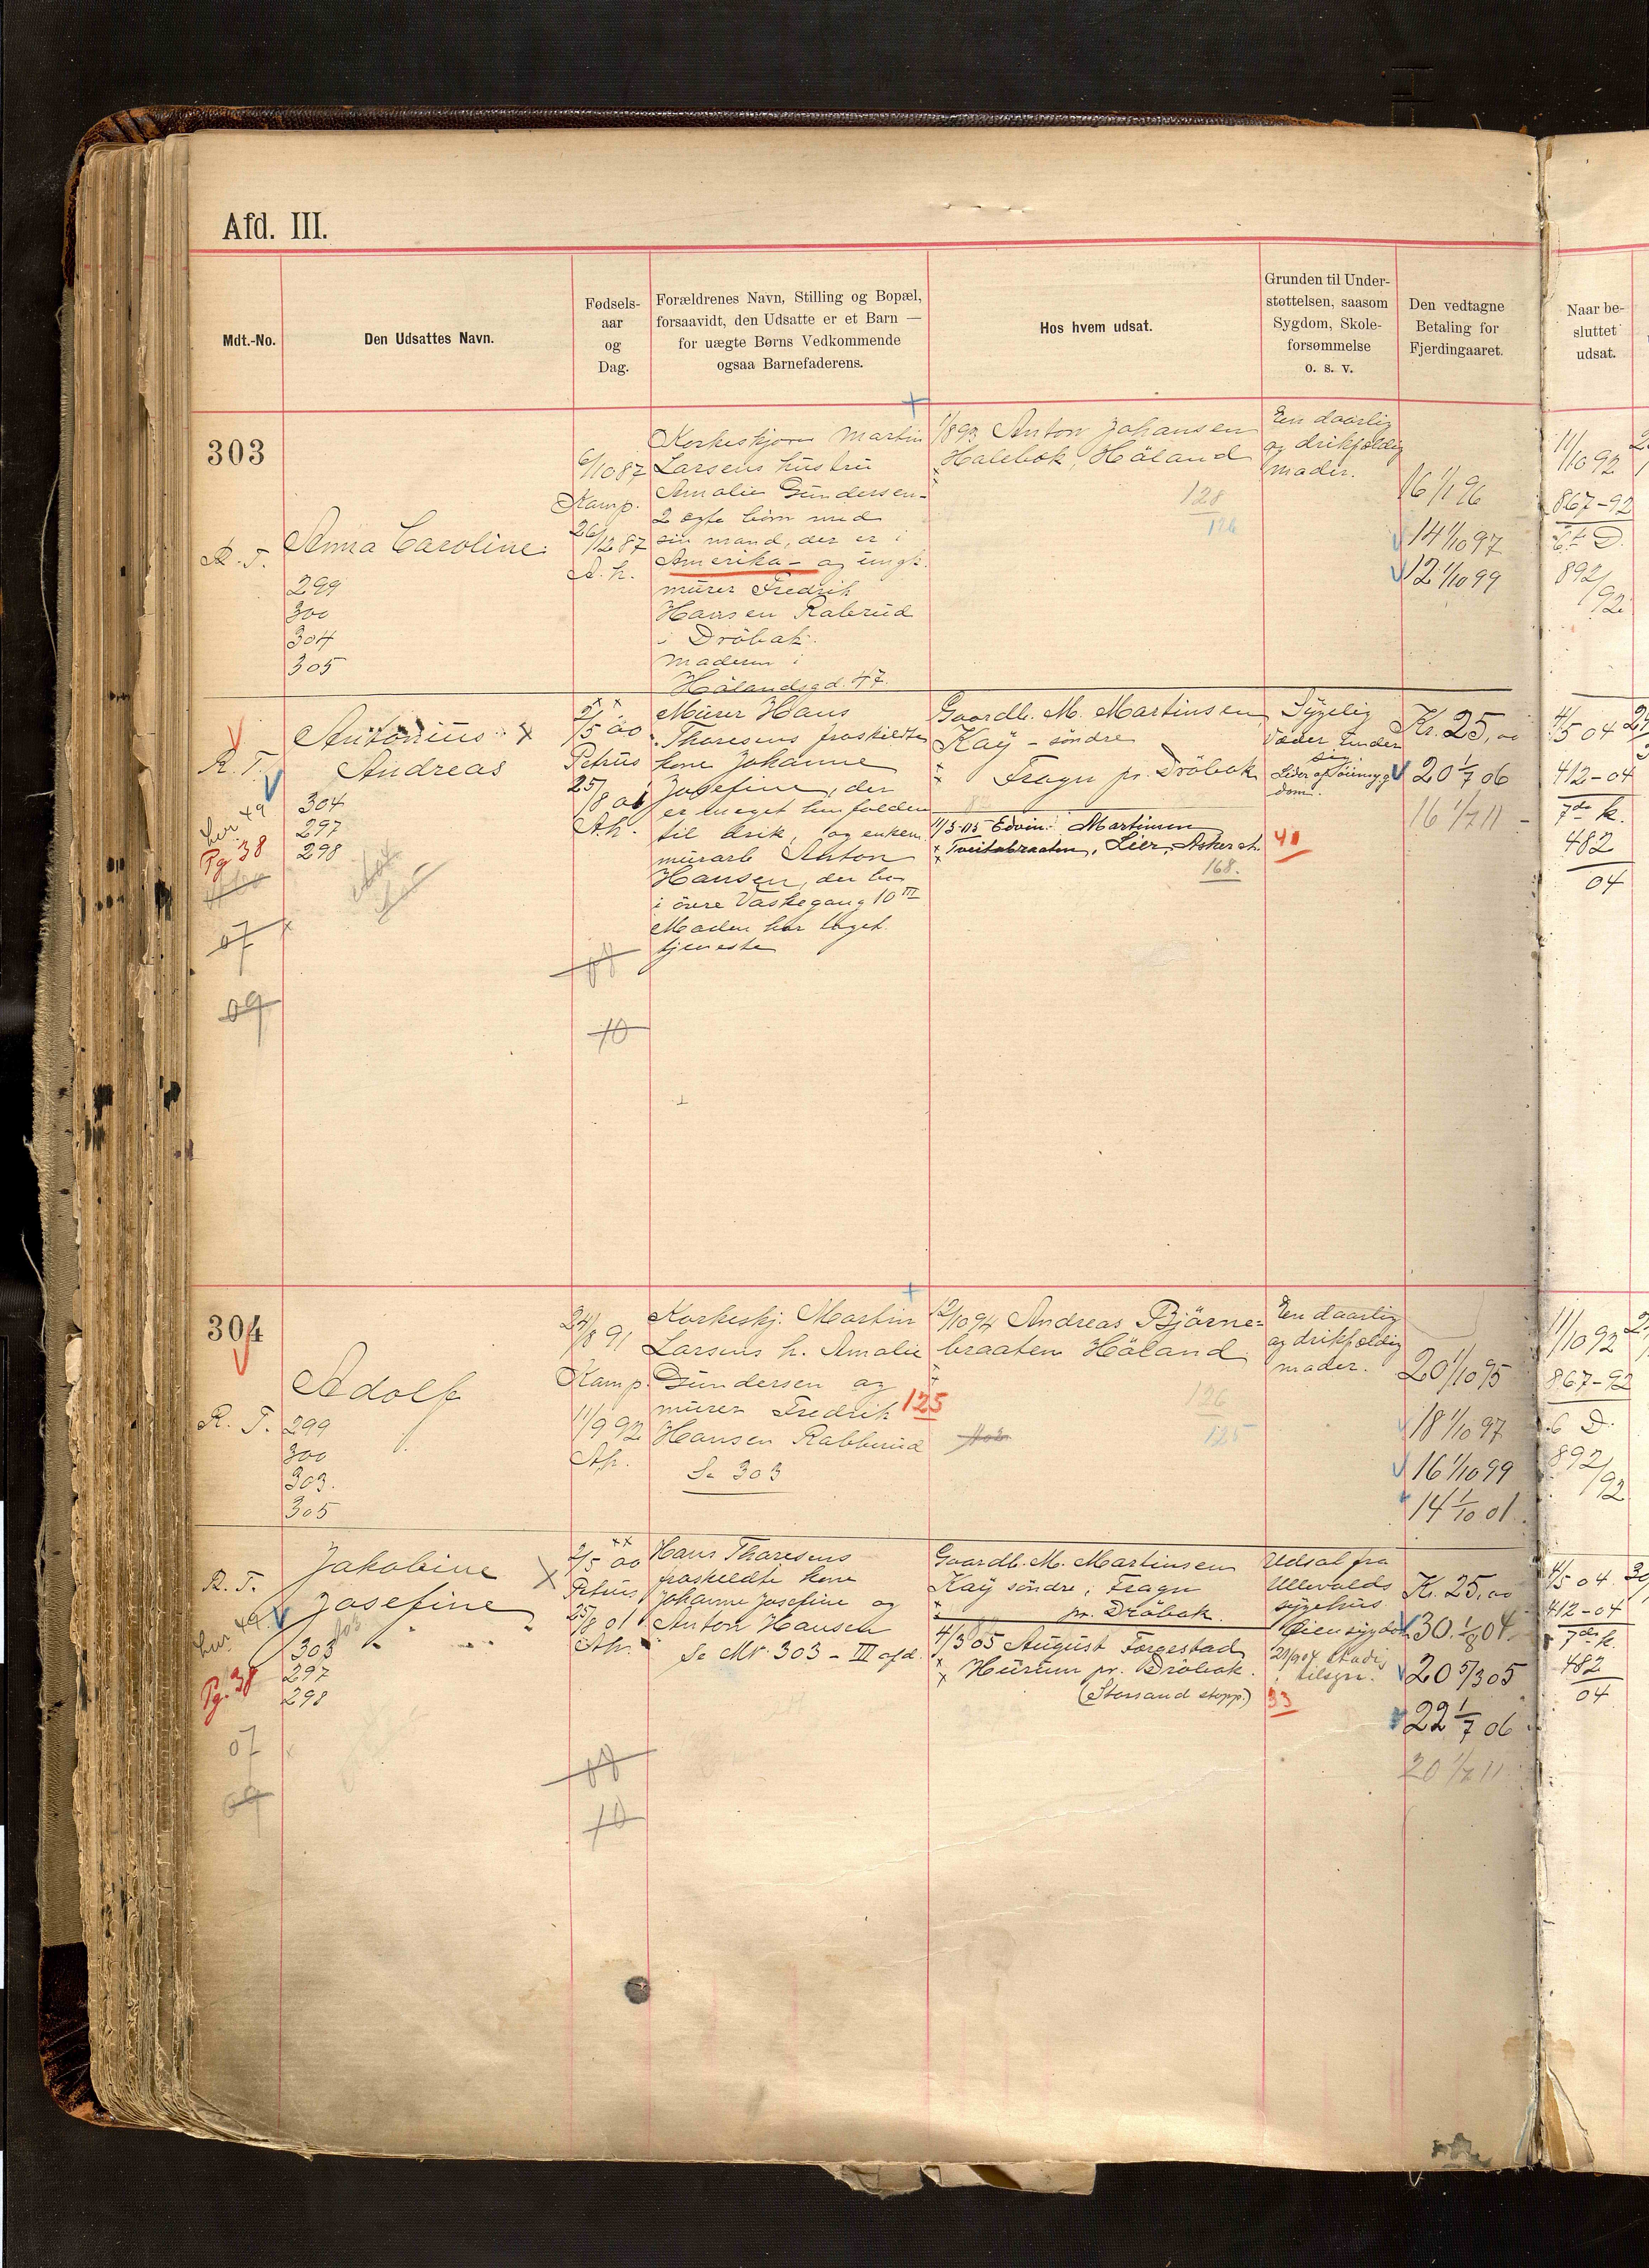 Afd. III.
Mdt.-No.
Den Udsattes Navn.
Fødsels-
aar
og
Dag.
Forældrenes Navn, Stilling og Bopæl,
forsaavidt, den Udsatte er et Barn —
for uægte Børns Vedkommende
ogsaa Barnefaderens.
Hos hvem udsat.
Grunden til Under-
støttelsen, saasom
Sygdom, Skole-
forsømmelse
o. s. v.
Den vedtagne
Betaling for
Fjerdingaaret.
Naar be-
sluttet
udsat.
303
R. T.
Anna Caroline
299
300
304
305
6/10 87
Kamp.
26/12 87
A. k.
Martin
Larsens hustru
Amalie Gundersen -
2 ægte børn med
sin mand, der er i
Amerika - og ungk.
murer Fredrik
Hansen Raberud
i Dröbak.
Moderen i
Hölandsgd. 47.
Anton Johansen
Höland
128
126
En daarlig
og drikfældig
moder.
16 1/1 96
14 1/10 97
12 1/10 99
11/10 92
867-92
6te D.
892/92
R. T.
Antonius x
Andreas
304
297
298
Pg. 38
07
09
2/5 00
Petrus
25/8 00
A.k.
10
Murer Hans
Thoresens fraskildte
kone Johanne
Josefine, der
er meget henfalden
til drik, og enkem.
murarb. Anton
Hansen, der bor
i övre Vaskegang 10 III
Moden har taget
tjeneste
Gaardb. M. Martinsen
Kaÿ - söndre
Fragn pr. Dröbak
11/3-05 Edvin Martinsen
Tveitabraaten, Lier, Asker st.
168.
Sygelig
41
Kr. 25,00
20 1/7 06
16 1/7 11
4/5 04
412-04
7de k.
482
04
304
R. T.
Adolf
299
300
303.
305
24/8 91
Kamp.
11/9 92
Ak.
Korkeskj. Martin
Larsens h. Amalie
Gundersen og
murer Fredrik
Hansen Rabberud
Se 303
125
12/10 94 Andreas Björne-
braaten Höland
126
125
En daarlig
og drikfældig
moder.
20 1/10 95
18 1/10 97
16 1/10 99
14 1/10 01
11/10 92
867-92
6 D.
892/92
R. T.
Jakobine
Josefine
303
297
298
Pg. 38
07
09
2/5 00
Petrus
25/8 01
Ak.
10
Hans Thoresens
fraskildte kone
Johanne Josefine og
Anton Hansen
Se Nr 303 - III afd.
Gaardb. M. Martinsen
Kaÿ söndre, Fragn
pr. Dröbak.
4/3 05 August Torgestad
Hurum pr. Dröbak.
(Storsand stopp.)
Udsat fra
Ullevolds
sygehus
Öiensygdom
stadig
tilsyn.
33
Kr. 25,00
30. 1/8 04.
20 5/3 05
22 1/7 06
20 1/7 11
4/5 04
412-04
7de k.
482
04